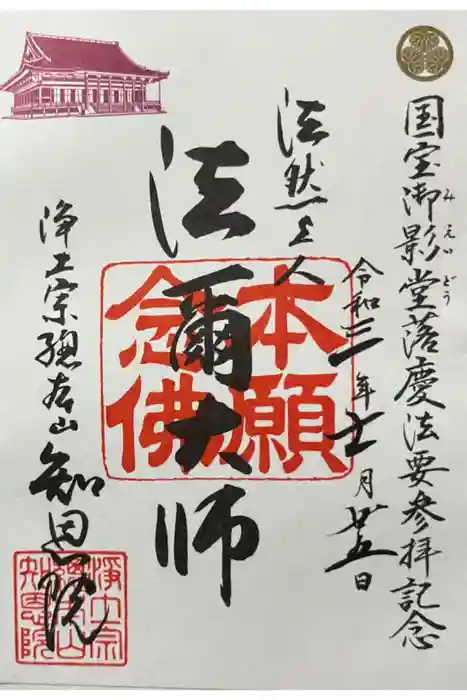 国宝御影堂落慶法要参拝記念
みえいどう
令和三年十一月廿五日
法然上人
法爾大師
本願
念佛
浄土宗總本山
知恩院
浄土宗
總本山
知恩院